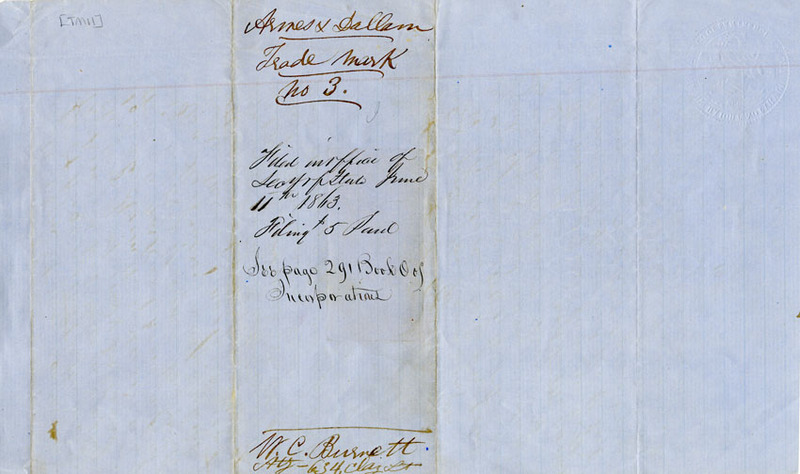 [TM11]
Armes & Dallam
Trade Mark
No 3.
Filed in office of
Secy of State June
11th 1863.
Filing $5 Paid
See page 291 Book O of
Incorporations
W. C. Burnett
Atty - 634 Clay St